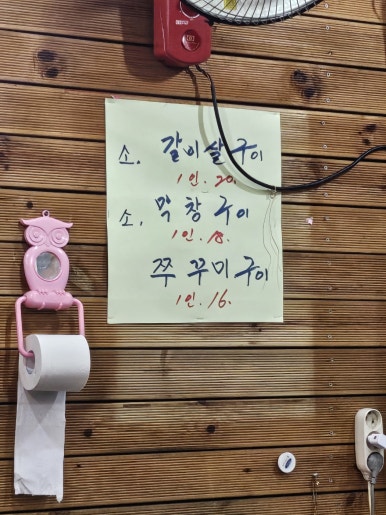 소. 갈비살구이
1인. 20.
소, 막창구이
1인. 18.
쭈꾸미구이
1인. 16.